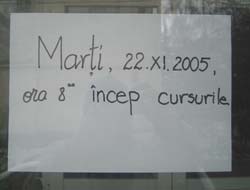 Marți, 22.XI.2005,
ora 8⁰⁰ încep cursurile.